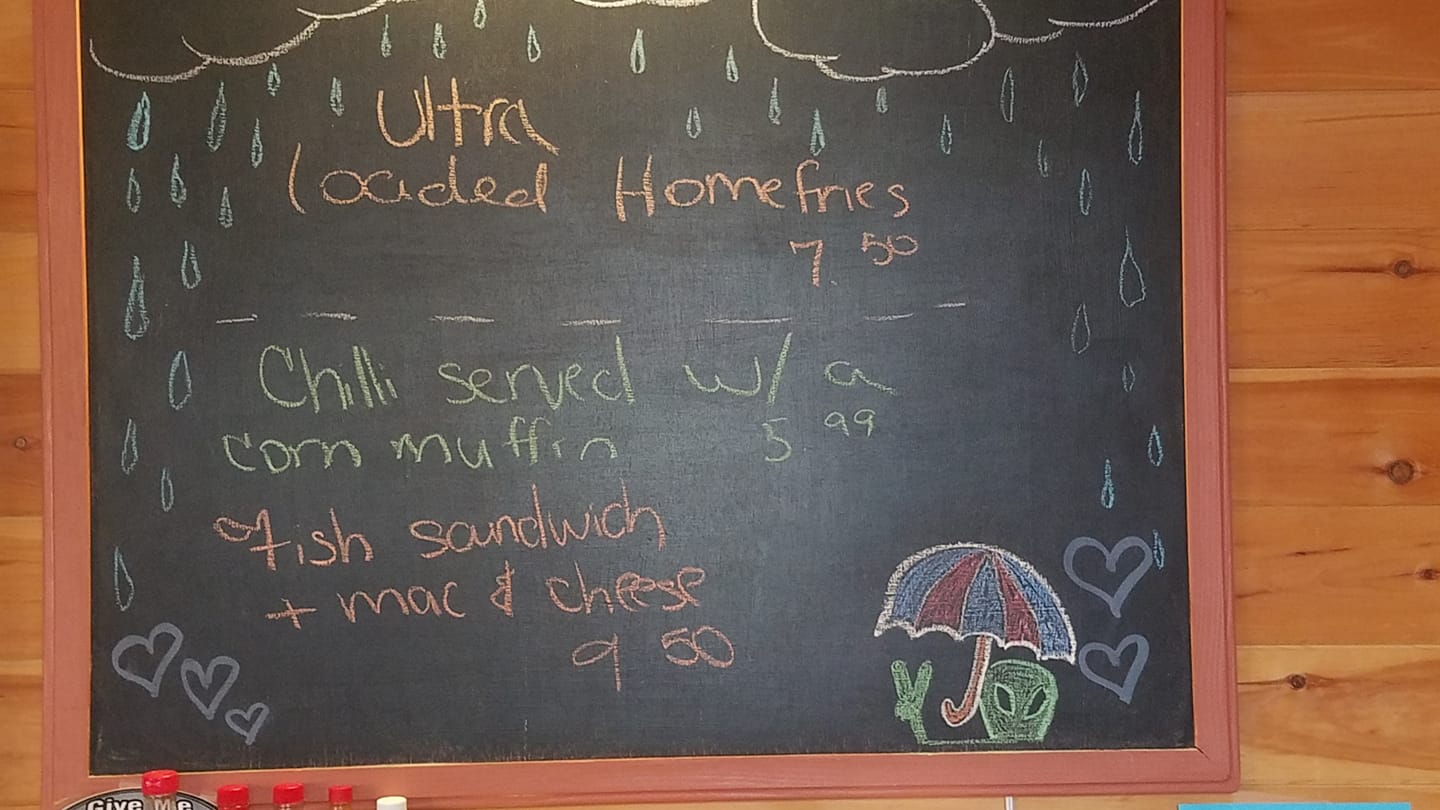 Ultra
Loaded Homefries
7.50
Chilli served w/ a
corn muffin 5.99
fish sandwich
+ mac & cheese
9 50
Give Me